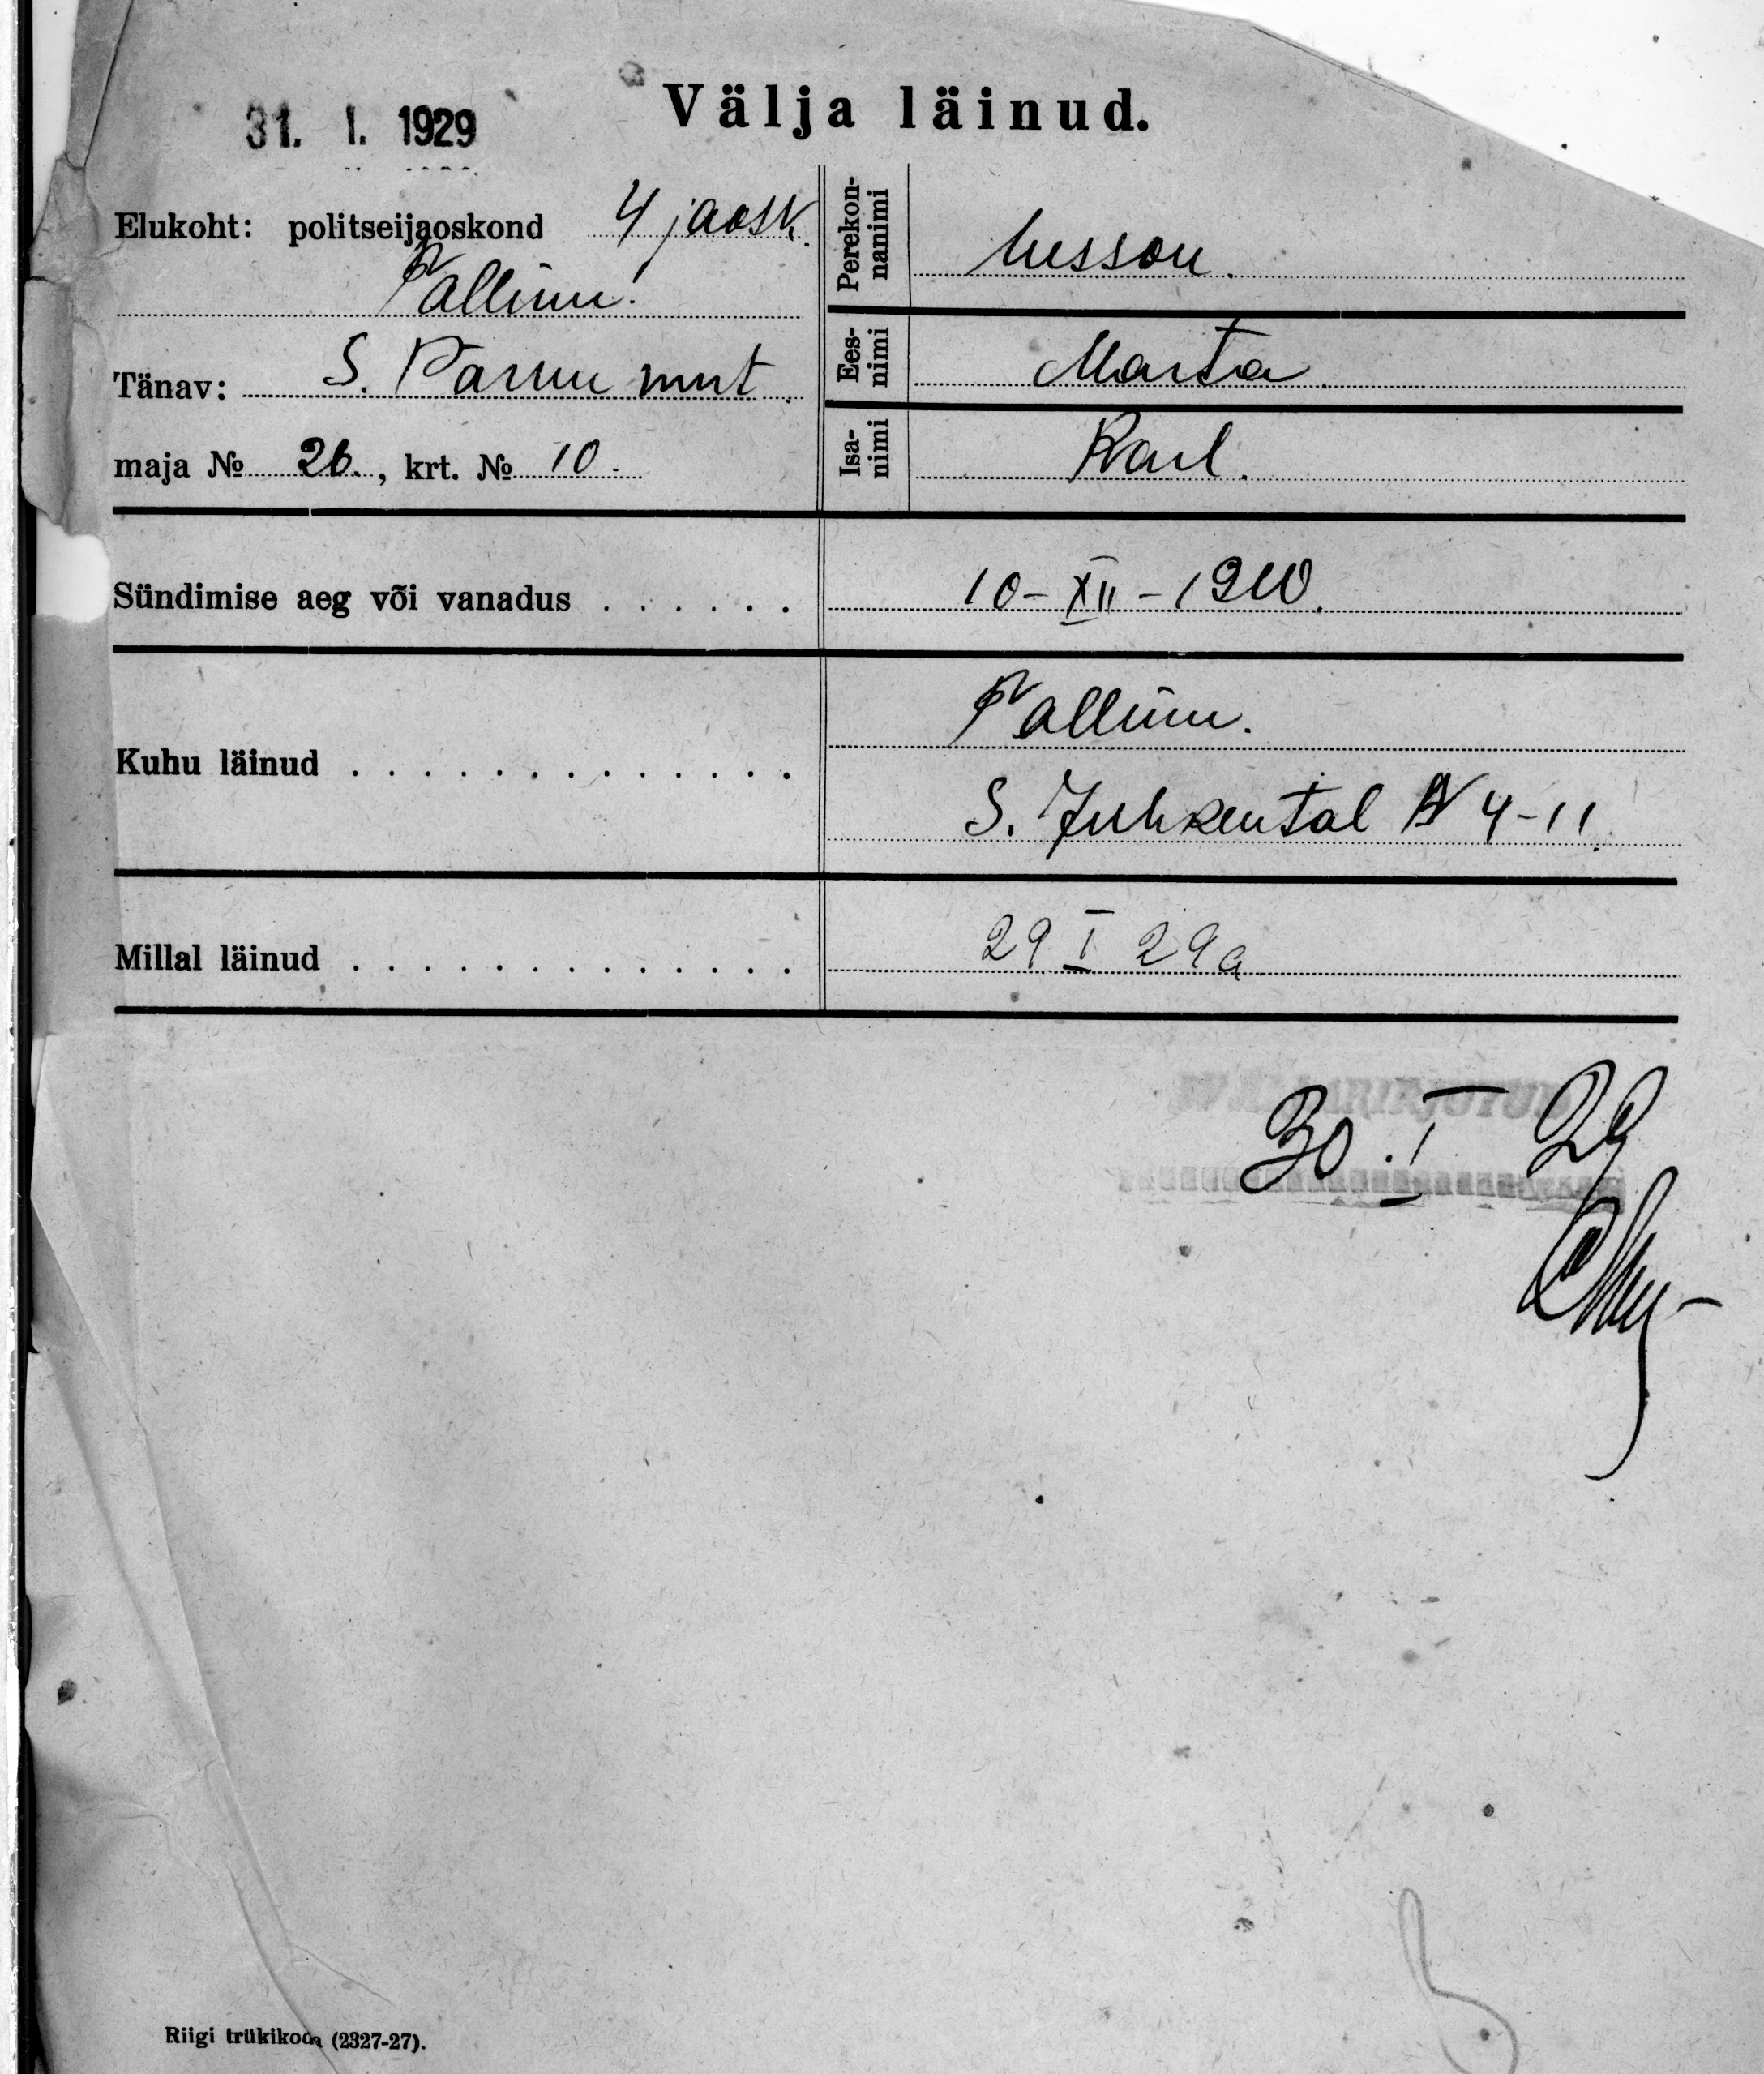 31. I. 1929
Välja läinud.
Elukoht: politseijaoskond 4 jaosk.
Tallinn.
Tänav: S. Parnu mnt.
maja № 26., krt. № 10.
Perekon-
nanimi
Ees-
nimi Marta.
Isa-
nimi Karl.
Sündimise aeg või vanadus . . . . . . 10-XII-1910.
Kuhu läinud . . . . . . . . . . . . . Tallinn.
S. Juhkental N 4-11.
Millal läinud . . . . . . . . . . . . . 29 I 29a
30. I 29
Riigi trükikoda (2327-27).